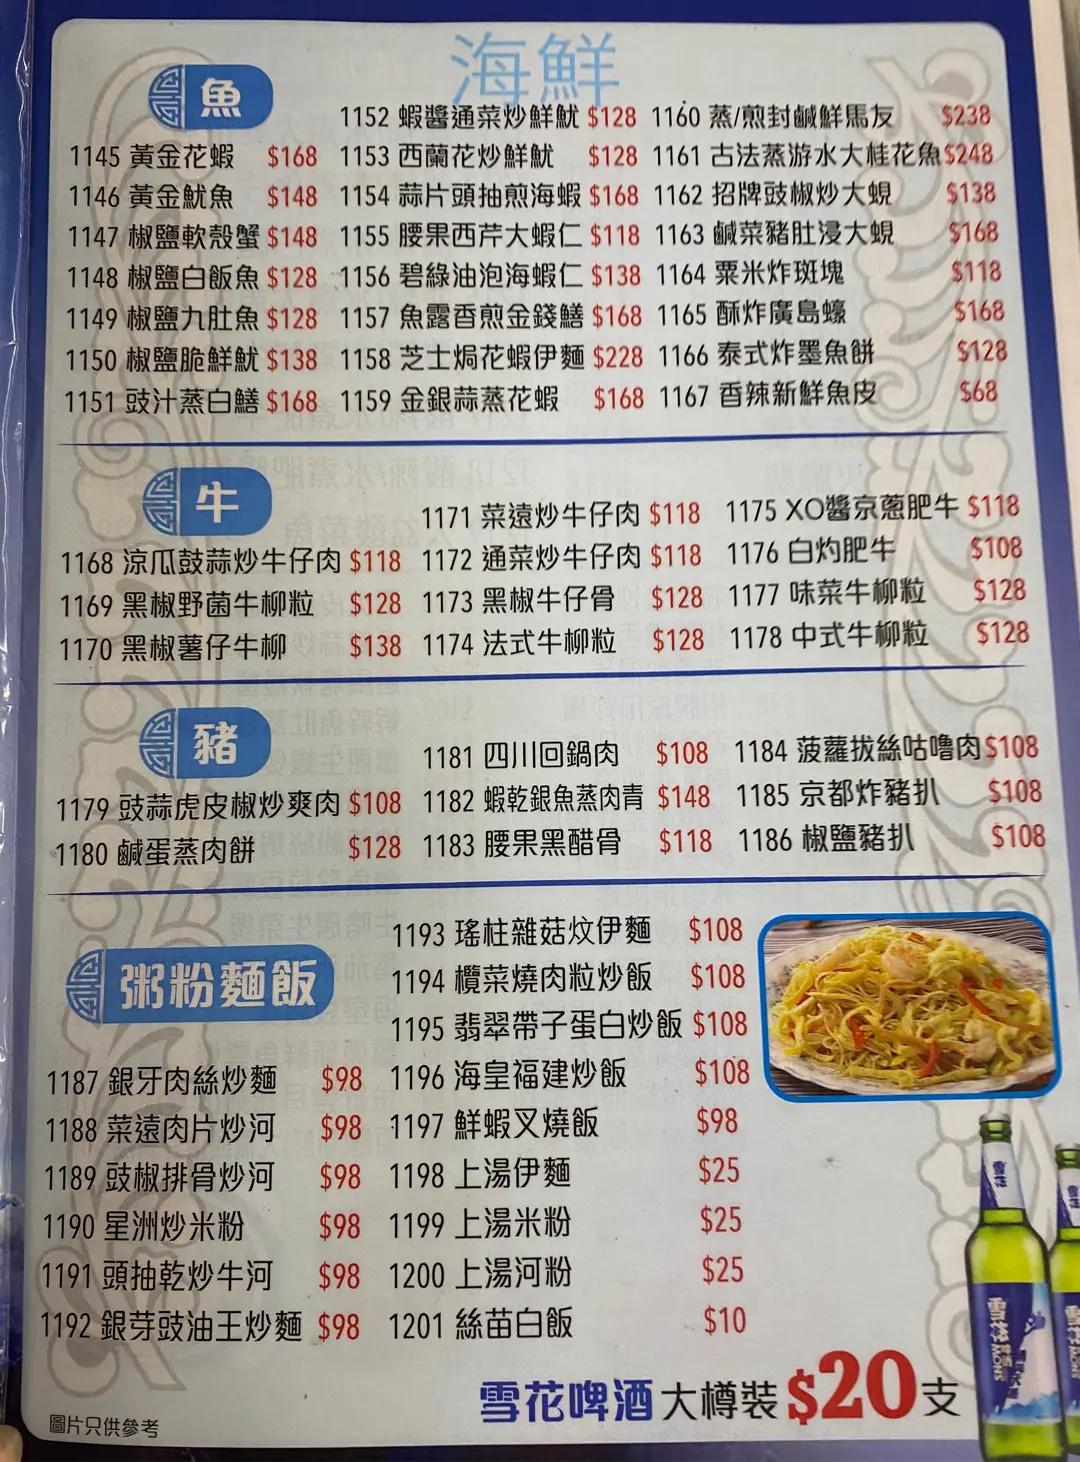 海鮮
魚
1145 黃金花蝦 $168
1146 黃金魷魚 $148
1147 椒鹽軟殼蟹 $148
1148 椒鹽白飯魚 $128
1149 椒鹽九肚魚 $128
1150 椒鹽脆鮮魷 $138
1151 豉汁蒸白鱔 $168
1152 蝦醬通菜炒鮮魷 $128
1153 西蘭花炒鮮魷 $128
1154 蒜片頭抽煎海蝦 $168
1155 腰果西芹大蝦仁 $118
1156 碧綠油泡海蝦仁 $138
1157 魚露香煎金錢鱔 $168
1158 芝士焗花蝦伊麵 $228
1159 金銀蒜蒸花蝦 $168
1160 蒸/煎封鹹鮮馬友 $238
1161 古法蒸游水大桂花魚 $248
1162 招牌豉椒炒大蜆 $138
1163 鹹菜豬肚浸大蜆 $168
1164 粟米炸斑塊 $118
1165 酥炸廣島蠔 $168
1166 泰式炸墨魚餅 $128
1167 香辣新鮮魚皮 $68
牛
1168 涼瓜鼓蒜炒牛仔肉 $118
1169 黑椒野菌牛柳粒 $128
1170 黑椒薯仔牛柳 $138
1171 菜遠炒牛仔肉 $118
1172 通菜炒牛仔肉 $118
1173 黑椒牛仔骨 $128
1174 法式牛柳粒 $128
1175 XO醬京蔥肥牛 $118
1176 白灼肥牛 $108
1177 味菜牛柳粒 $128
1178 中式牛柳粒 $128
豬
1179 豉蒜虎皮椒炒爽肉 $108
1180 鹹蛋蒸肉餅 $128
1181 四川回鍋肉 $108
1182 蝦乾銀魚蒸肉青 $148
1183 腰果黑醋骨 $118
1184 菠蘿拔絲咕嚕肉 $108
1185 京都炸豬扒 $108
1186 椒鹽豬扒 $108
粥粉麵飯
1187 銀牙肉絲炒麵 $98
1188 菜遠肉片炒河 $98
1189 豉椒排骨炒河 $98
1190 星洲炒米粉 $98
1191 頭抽乾炒牛河 $98
1192 銀芽豉油王炒麵 $98
1193 瑤柱雜菇炆伊麵 $108
1194 欖菜燒肉粒炒飯 $108
1195 翡翠帶子蛋白炒飯 $108
1196 海皇福建炒飯 $108
1197 鮮蝦叉燒飯 $98
1198 上湯伊麵 $25
1199 上湯米粉 $25
1200 上湯河粉 $25
1201 絲苗白飯 $10
雪花啤酒 大樽裝 $20支
圖片只供參考
雪花